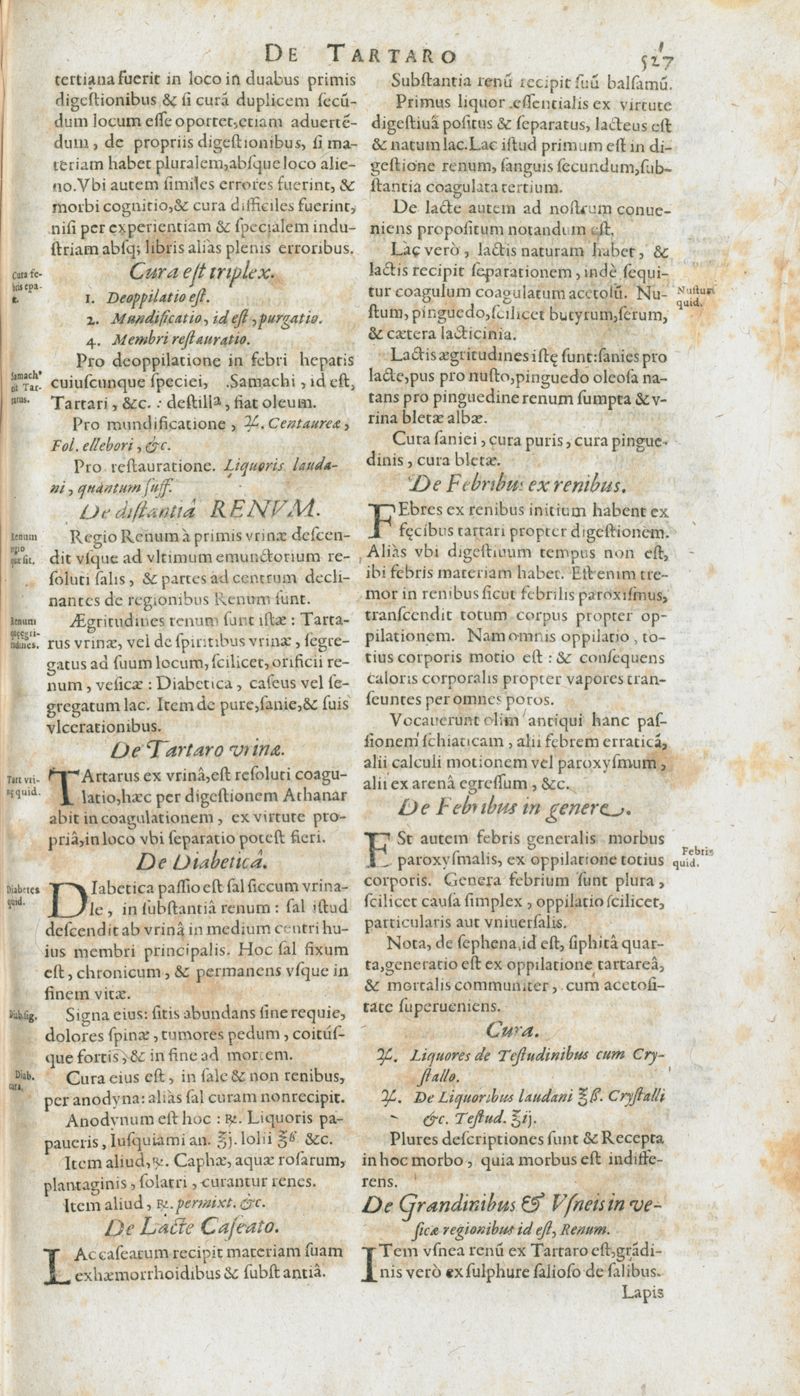 DE TARTARO
527
tertiana fuerit in loco in duabus primis
digeſtionibus & ſi curâ duplicem ſecū-
dum locum eſſe oportet, etiam aduertē-
dum, de propriis digeſtionibus, ſi ma-
teriam habet pluralem, abſque loco alie-
no. Vbi autem ſimiles errores fuerint, &
morbi cognitio, & cura difficiles fuerint,
niſi per experientiam & ſpecialem indu-
ſtriam abſq; libris aliàs plenis erroribus.
Cura eſt triplex.
Cura fe-
bris epa-
t.
1. Deoppilatio eſt.
2. Mundificatio, id eſt, purgatio.
4. Membri reſtauratio.
Pro deoppilatione in febri hepatis
cuiuſcunque ſpeciei, Samachi, id eſt,
Tartari, &c. : deſtillª, fiat oleum.
Samachª
Tar-
tarus.
Pro mundificatione, ♃. Centaureæ,
Fol. ellebori, &c.
Pro reſtauratione. Liquoris lauda-
ni, quantum ſuff.
De diſtantiâ RENVM.
Regio Renum à primis vrinæ deſcen-
dit vſque ad vltimum emunctorium re-
ſoluti ſalis, & partes ad centrum decli-
nantes de regionibus Renum ſunt.
Renum
regio
quæ ſit.
Ægritudines renum ſunt iſtæ : Tarta-
rus vrinæ, vel de ſpiritibus vrinæ, ſegre-
gatus ad ſuum locum, ſcilicet, orificii re-
num, veſicæ : Diabetica, caſeus vel ſe-
gregatum lac. Item de pure, ſanie, & ſuis
vlcerationibus.
Renum
ægri-
tudines.
De Tartaro vrinæ.
TArtarus ex vrinâ, eſt reſoluti coagu-
latio, hæc per digeſtionem Athanar
abit in coagulationem, ex virtute pro-
priâ, in loco vbi ſeparatio poteſt fieri.
Tart vri-
nę quid.
De Diabeticâ.
DIabetica paſſio eſt ſal ſiccum vrina-
le, in ſubſtantiâ renum : ſal iſtud
deſcendit ab vrinâ in medium centri hu-
ius membri principalis. Hoc ſal fixum
eſt, chronicum, & permanens vſque in
finem vitæ.
Diabetes
quid.
Signa eius : ſitis abundans ſine requie,
dolores ſpinæ, tumores pedum, coitúſ-
que fortis, & in fine ad mortem.
Diab. ſig.
Cura eius eſt, in ſale & non renibus,
per anodyna : aliàs ſal curam non recipit.
Diab.
cura.
Anodynum eſt hoc : ℞. Liquoris pa-
paueris, Iuſquiami an. ℥j. lolii ℥ß &c.
Item aliud, ℞. Caphæ, aquæ roſarum,
plantaginis, ſolatri, curantur renes.
Item aliud, ℞. permixt. &c.
De Lacte Caſeato.
LAc caſeatum recipit materiam ſuam
ex hæmorrhoidibus & ſubſtantiâ.
Subſtantia renū recipit ſuū balſamū.
Primus liquor eſſentialis ex virtute
digeſtiuâ poſitus & ſeparatus, lacteus eſt
& natum lac. Lac iſtud primum eſt in di-
geſtione renum, ſanguis ſecundum, ſub-
ſtantia coagulata tertium.
De lacte autem ad noſtrum conue-
niens propoſitum notandum eſt.
Lac verò, lactis naturam habet, &
lactis recipit ſeparationem, indè ſequi-
tur coagulum coagulatum acetoſū. Nu-
ſtum, pinguedo, ſcilicet butyrum, ſerum,
& cætera lacticinia.
Nuſtum
quid.
Lactis ægritudines iſtę ſunt: ſanies pro
lacte, pus pro nuſto, pinguedo oleoſa na-
tans pro pinguedine renum ſumpta & v-
rina bletæ albæ.
Cura ſaniei, cura puris, cura pingue-
dinis, cura bletæ.
De Febribus ex renibus.
FEbres ex renibus initium habent ex
fęcibus tartari propter digeſtionem.
Aliàs vbi digeſtiuum tempus non eſt,
ibi febris materiam habet. Eſt enim tre-
mor in renibus ſicut febrilis paroxiſmus,
tranſcendit totum corpus propter op-
pilationem. Nam omnis oppilatio, to-
tius corporis motio eſt : & conſequens
caloris corporalis propter vapores tran-
ſeuntes per omnes poros.
Vocauerunt olim antiqui hanc paſ-
ſionem ſchiaticam, alii febrem erraticā,
alii calculi motionem vel paroxyſmum,
alii ex arenâ egreſſum, &c.
De Febribus in genere.
ESt autem febris generalis morbus
paroxyſmalis, ex oppilatione totius
corporis. Genera febrium ſunt plura,
ſcilicet cauſa ſimplex, oppilatio ſcilicet,
particularis aut vniuerſalis.
Febris
quid.
Nota, de ſephena, id eſt, ſiphitâ quar-
ta, generatio eſt ex oppilatione tartareâ,
& mortalis communiter, cum acetoſi-
tate ſuperueniens.
Cura.
♃. Liquores de Teſtudinibus cum Cry-
ſtallo.
♃. De Liquoribus laudani ℥ß. Cryſtalli
&c. Teſtud. ℥ij.
Plures deſcriptiones ſunt & Recepta
in hoc morbo, quia morbus eſt indiffe-
rens.
De Grandinibus & Vſneis in ve-
ſicæ regionibus id eſt, Renum.
ITem vſnea renū ex Tartaro eſt, grādi-
nis verò ex ſulphure ſalioſo de ſalibus.
Lapis